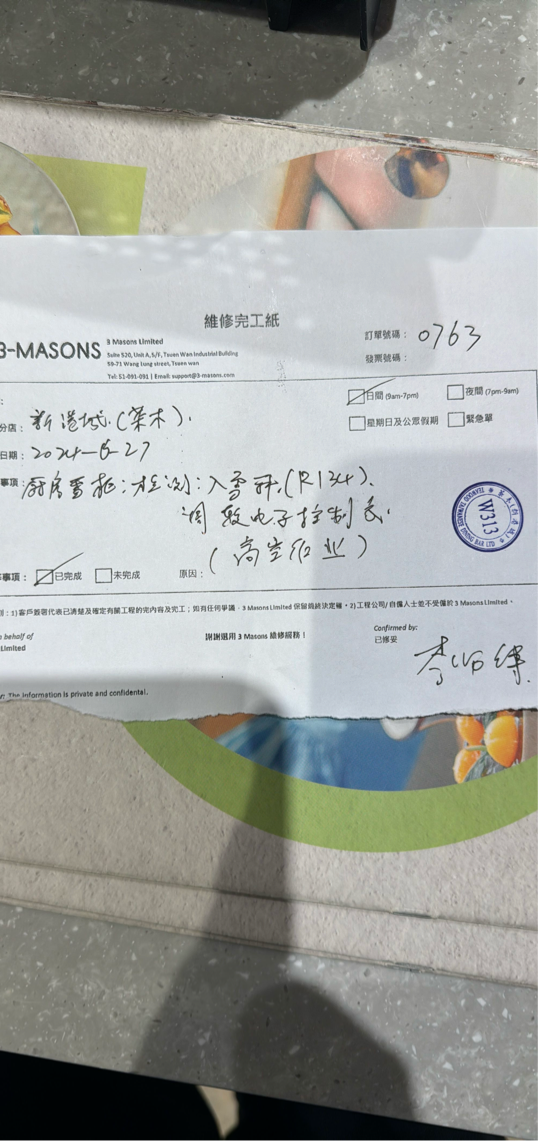 維修完工紙
3-MASONS
3 Masons Limited
Suite 520, Unit A, 5/F, Tsuen Wan Industrial Building
59-71 Wang Lung street, Tsuen wan
Tel: 51-091-091 | Email: support@3-masons.com
訂單號碼： 0763
發票號碼：
日間 (9am-7pm) 夜間 (7pm-9am)
星期日及公眾假期 緊急單
分店： 新港城(築木).
日期： 2024-6-27
事項： 厨房雪柜: 检测: 入雪种.(R134).
调 电子控制
(高空作业)
事項： 已完成 未完成 原因：
W313
1) 客戶簽署代表已清楚及確定有關工程的完內容及完工；如有任何爭議，3 Masons Limited 保留最終決定權。2) 工程公司/自僱人士並不受僱於 3 Masons Limited。
behalf of
Limited
謝謝選用 3 Masons 維修服務！
Confirmed by:
已修妥
The information is private and confidental.